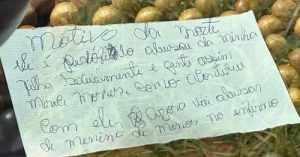 Motivo da morte
ele é Pedófilo abusou da minha
filha sexualmente e gente assim
morre
Com ele agora vai abusar
de menina de menor no inferno